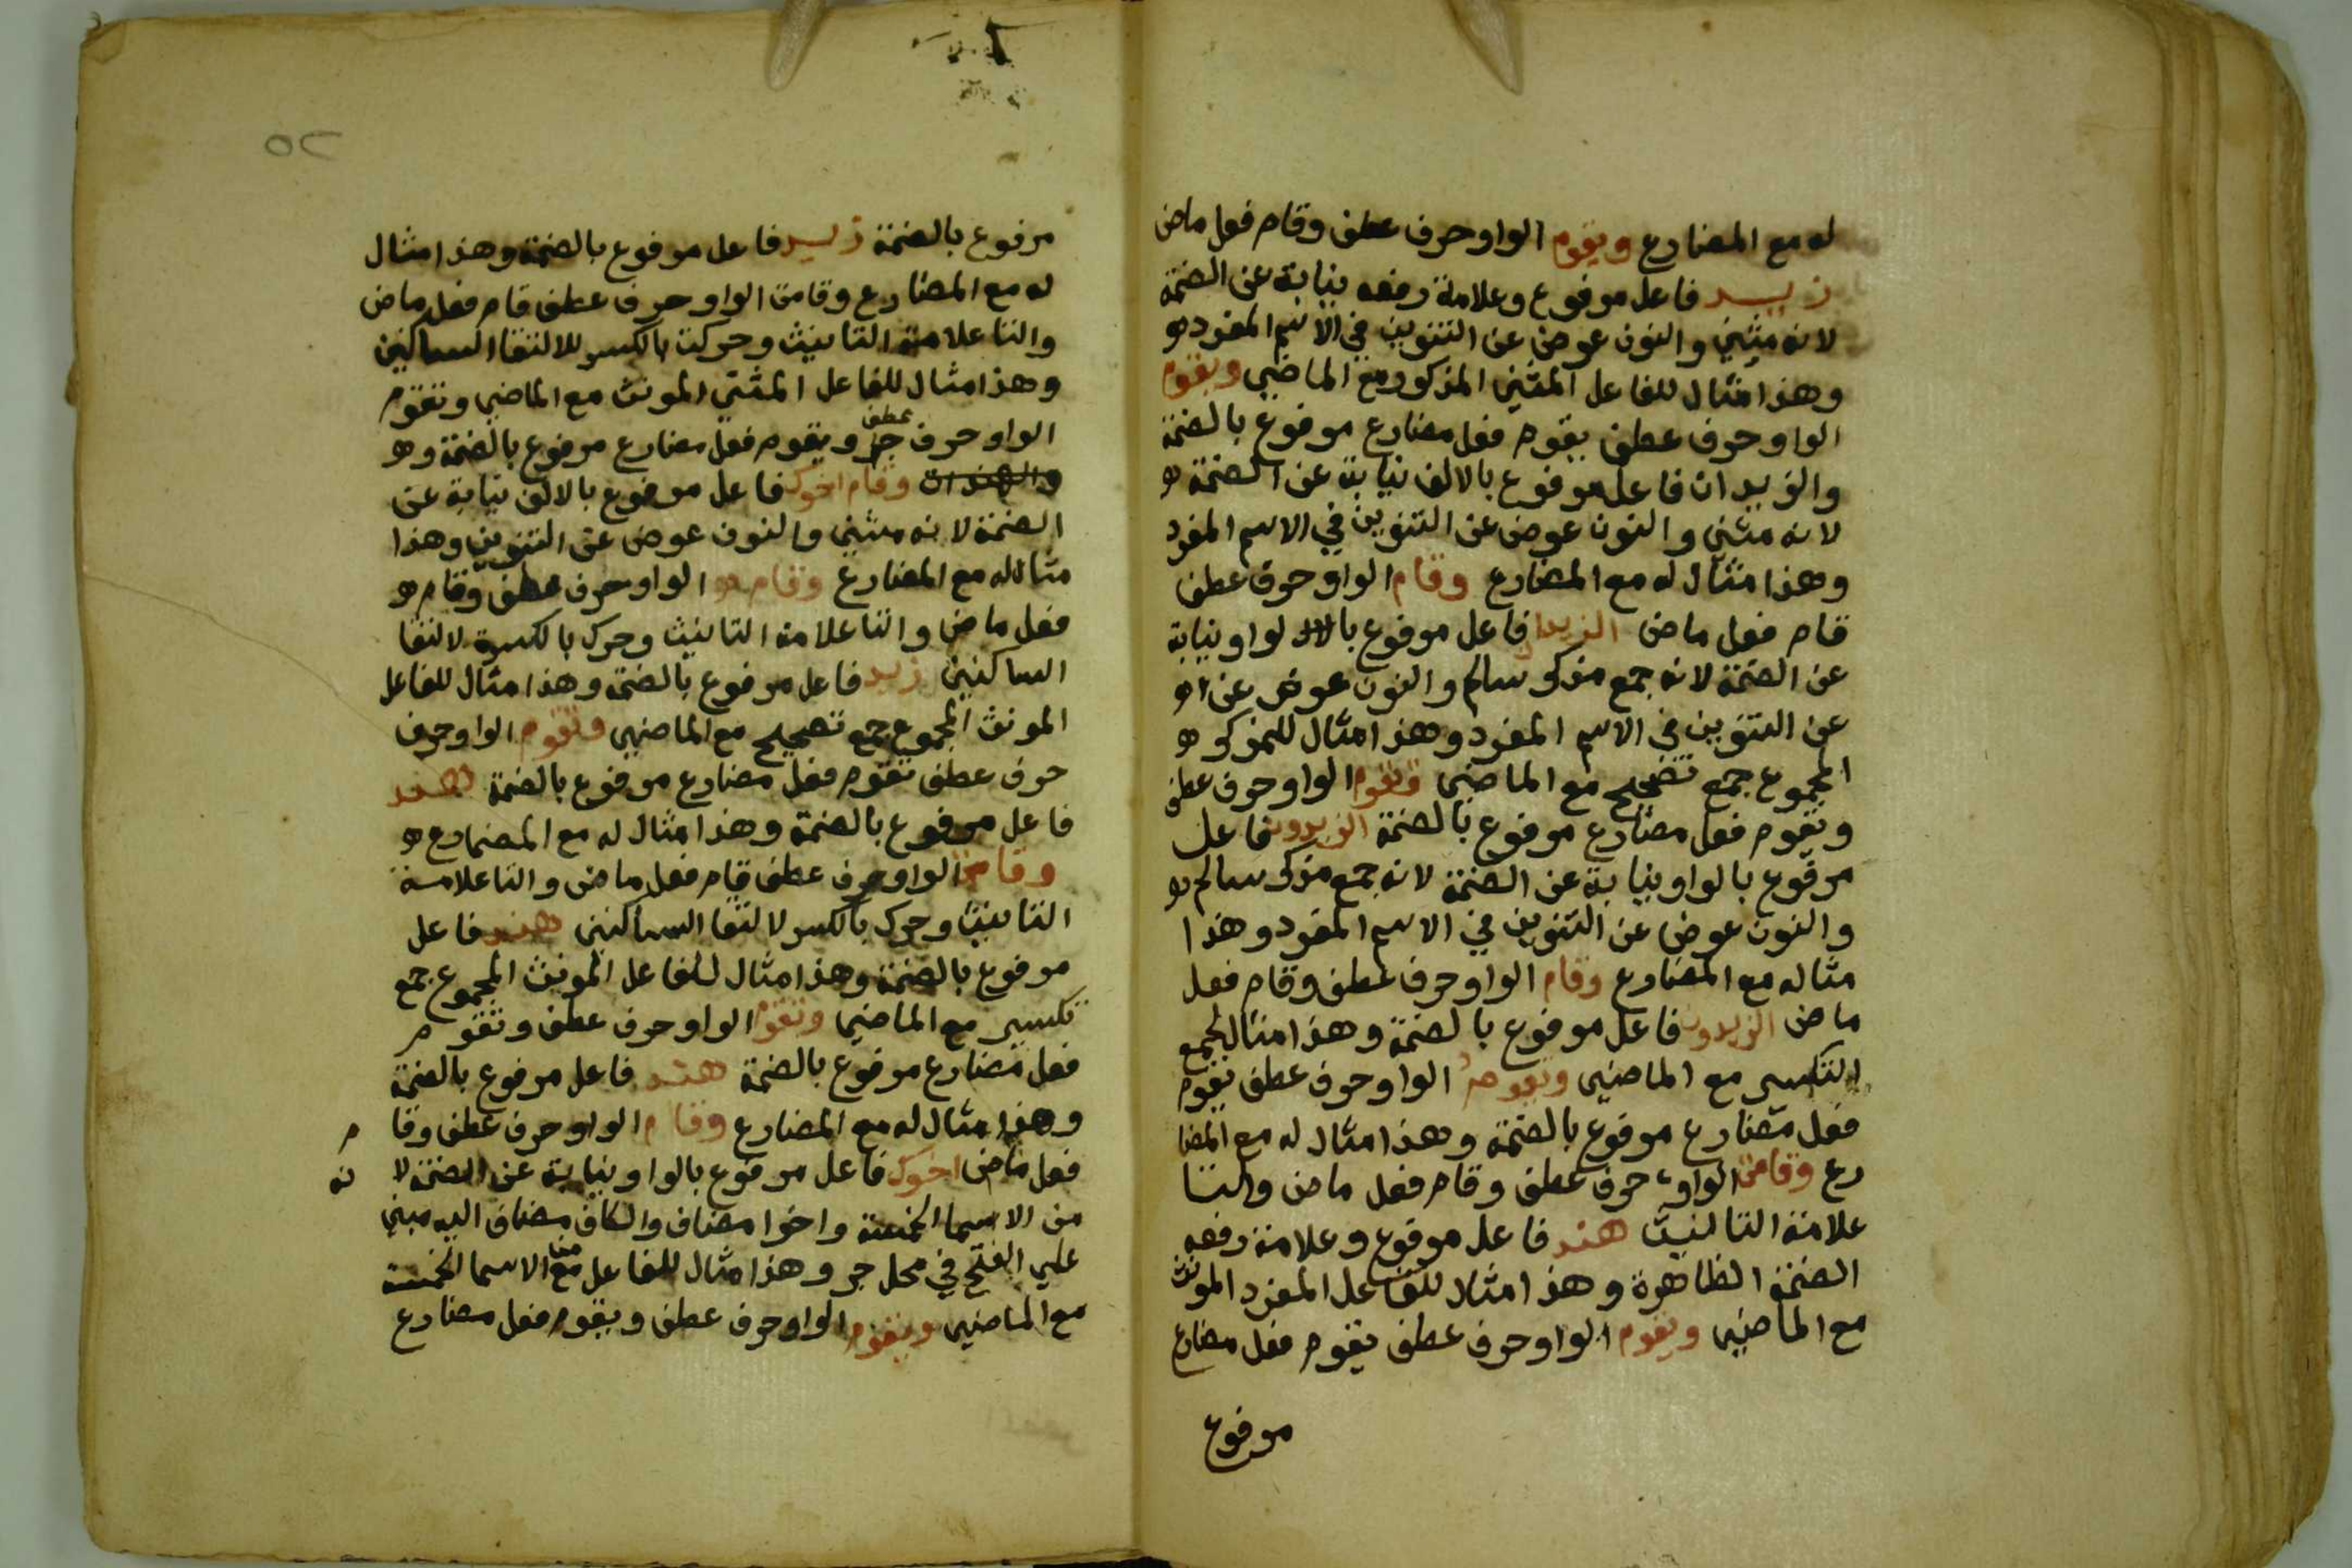 له مع المضارع ويقوم الواو حرف عطف وقام فعل ماض
زيد فاعل مرفوع وعلامة رفعه نيابة عن الضمة
لانه مثني والنون عوض عن التنوين في الاسم المفرد
وهذا مثال للفاعل المثني المذكور مع الماضي ويقوم
الواو حرف عطف يقوم فعل مضارع مرفوع بالضمة
والزيدان فاعل مرفوع بالالف نيابة عن الضمة
لانه مثني والنون عوض عن التنوين في الاسم المفرد
وهذا مثال له مع المضارع وقام الواو حرف عطف
قام فعل ماض الزيدا فاعل مرفوع بالواو نيابة
عن الضمة لانه جمع مذكر سالم والنون عوض عن
عن التنوين في الاسم المفرد وهذا مثال للمذكر
المجموع جمع تصحيح مع الماضي ويقوم الواو حرف عطف
ويقوم فعل مضارع مرفوع بالضمة الزيدون فاعل
مرفوع بالواو نيابة عن الضمة لانه جمع مذكر سالم
والنون عوض عن التنوين في الاسم المفرد وهذا
مثاله مع المضارع وقام الواو حرف عطف وقام فعل
ماض الزيدون فاعل مرفوع بالضمة وهذا مثال لجمع
التكسير مع الماضي ويقوم الواو حرف عطف يقوم
فعل مضارع مرفوع بالضمة وهذا مثال له مع المضا
رع وقامت الواو حرف عطف وقام فعل ماض والتا
علامة التانيث هند فاعل مرفوع وعلامة رفعه
الضمة الظاهرة وهذا مثال للفاعل المفرد المونث
مع الماضي ويقوم الواو حرف عطف يقوم فعل مضارع
مرفوع
٥٢
مرفوع بالضمة زيد فاعل مرفوع بالضمة وهذا مثال
له مع المضارع وقامت الواو حرف عطف قام فعل ماض
والتا علامة التانيث وحركت بالكسر للالتقا الساكنين
وهذا مثال للفاعل المثني المونث مع الماضي وتقوم
الواو حرف جر عطف ويقوم فعل مضارع مرفوع بالضمة و
والهندات وقام اخوك فاعل مرفوع بالالف نيابة عن
الضمة لانه مثني والنون عوض عن التنوين وهذا
مثال له مع المضارع وقام الواو حرف عطف وقام
فعل ماض والتا علامة التانيث وحرك بالكسرة لالتقا
الساكنين زيد فاعل مرفوع بالضمة وهذا مثال للفاعل
المونث المجموع جمع تصحيح مع الماضي وتقوم الواو حرف
حرف عطف تقوم فعل مضارع مرفوع بالضمة هند
فاعل مرفوع بالضمة وهذا مثال له مع المضارع
وقامت الواو حرف عطف قام فعل ماض والتا علامة
التانيث وحرك بالكسر لالتقا الساكنين هند فاعل
مرفوع بالضمة وهذا مثال للفاعل المونث المجموع جمع
تكسير مع الماضي وتقوم الواو حرف عطف وتقوم
فعل مضارع مرفوع بالضمة هند فاعل مرفوع بالضمة
وهذا مثال له مع المضارع وقام الواو حرف عطف وقا م
فعل ماض اخوك فاعل مرفوع بالواو نيابة عن الضمة لا نه
من الاسما الخمسة واخوا مضاف والكاف مضاف اليه مبني
علي الفتح في محل جر وهذا مثال للفاعل مع الاسما الخمسة
مع الماضي ويقوم الواو حرف عطف ويقوم فعل مضارع